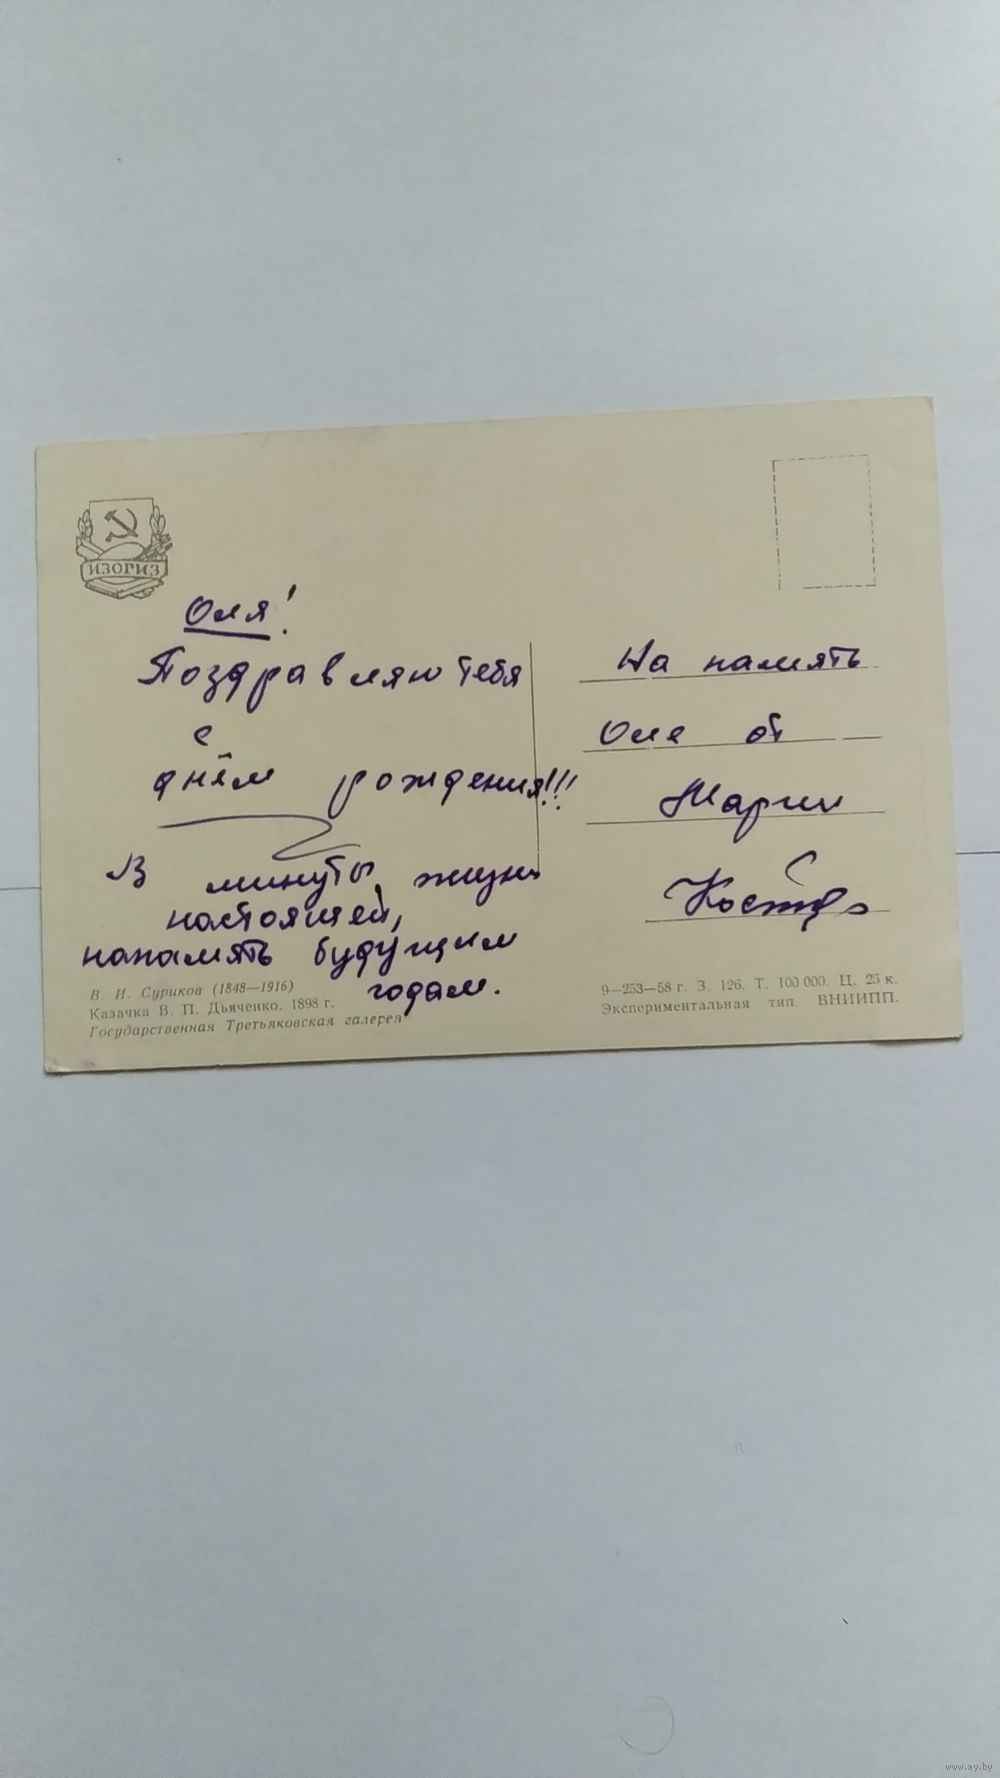 ИЗОГИЗ
Оля!
Поздравляю тебя
с
днём рождения!!!
В минуты жизни
настоящей,
напамять будущим
годам.
В. И. Суриков (1848—1916)
Казачка В. П. Дьяченко. 1898 г.
Государственная Третьяковская галерея
На память
Оле от
Марии
9—253—58 г. З. 126. Т. 100 000. Ц. 25 к.
Экспериментальная тип. ВНИИПП.
www.ay.by